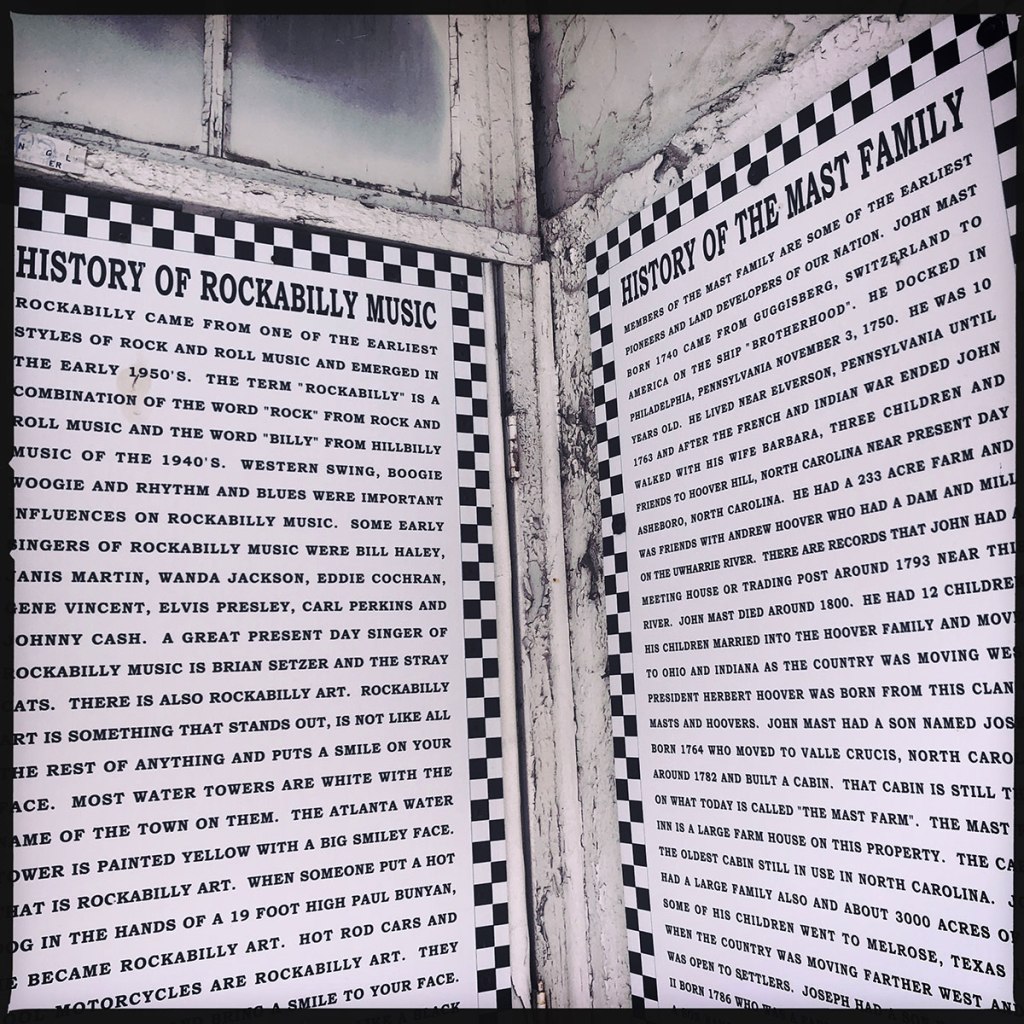 N G L
ER
HISTORY OF ROCKABILLY MUSIC
ROCKABILLY CAME FROM ONE OF THE EARLIEST
STYLES OF ROCK AND ROLL MUSIC AND EMERGED IN
THE EARLY 1950'S. THE TERM "ROCKABILLY" IS A
COMBINATION OF THE WORD "ROCK" FROM ROCK AND
ROLL MUSIC AND THE WORD "BILLY" FROM HILLBILLY
MUSIC OF THE 1940'S. WESTERN SWING, BOOGIE
WOOGIE AND RHYTHM AND BLUES WERE IMPORTANT
NFLUENCES ON ROCKABILLY MUSIC. SOME EARLY
SINGERS OF ROCKABILLY MUSIC WERE BILL HALEY,
JANIS MARTIN, WANDA JACKSON, EDDIE COCHRAN,
GENE VINCENT, ELVIS PRESLEY, CARL PERKINS AND
OHNNY CASH. A GREAT PRESENT DAY SINGER OF
ROCKABILLY MUSIC IS BRIAN SETZER AND THE STRAY
CATS. THERE IS ALSO ROCKABILLY ART. ROCKABILLY
RT IS SOMETHING THAT STANDS OUT, IS NOT LIKE ALL
HE REST OF ANYTHING AND PUTS A SMILE ON YOUR
ACE. MOST WATER TOWERS ARE WHITE WITH THE
AME OF THE TOWN ON THEM. THE ATLANTA WATER
OWER IS PAINTED YELLOW WITH A BIG SMILEY FACE.
HAT IS ROCKABILLY ART. WHEN SOMEONE PUT A HOT
OG IN THE HANDS OF A 19 FOOT HIGH PAUL BUNYAN,
E BECAME ROCKABILLY ART. HOT ROD CARS AND
MOTORCYCLES ARE ROCKABILLY ART. THEY
A SMILE TO YOUR FACE.
HISTORY OF THE MAST FAMILY
MEMBERS OF THE MAST FAMILY ARE SOME OF THE EARLIEST
PIONEERS AND LAND DEVELOPERS OF OUR NATION. JOHN MAST
BORN 1740 CAME FROM GUGGISBERG, SWITZERLAND TO
AMERICA ON THE SHIP "BROTHERHOOD". HE DOCKED IN
PHILADELPHIA, PENNSYLVANIA NOVEMBER 3, 1750. HE WAS 10
YEARS OLD. HE LIVED NEAR ELVERSON, PENNSYLVANIA UNTIL
1763 AND AFTER THE FRENCH AND INDIAN WAR ENDED JOHN
WALKED WITH HIS WIFE BARBARA, THREE CHILDREN AND
FRIENDS TO HOOVER HILL, NORTH CAROLINA NEAR PRESENT DAY
ASHEBORO, NORTH CAROLINA. HE HAD A 233 ACRE FARM AND
WAS FRIENDS WITH ANDREW HOOVER WHO HAD A DAM AND MILL
ON THE UWHARRIE RIVER. THERE ARE RECORDS THAT JOHN HAD A
MEETING HOUSE OR TRADING POST AROUND 1793 NEAR THI
RIVER. JOHN MAST DIED AROUND 1800. HE HAD 12 CHILDRE
HIS CHILDREN MARRIED INTO THE HOOVER FAMILY AND MOV
TO OHIO AND INDIANA AS THE COUNTRY WAS MOVING WES
PRESIDENT HERBERT HOOVER WAS BORN FROM THIS CLAN
MASTS AND HOOVERS. JOHN MAST HAD A SON NAMED JOS
BORN 1764 WHO MOVED TO VALLE CRUCIS, NORTH CARO
AROUND 1782 AND BUILT A CABIN. THAT CABIN IS STILL T
ON WHAT TODAY IS CALLED "THE MAST FARM". THE MAST
INN IS A LARGE FARM HOUSE ON THIS PROPERTY. THE CA
THE OLDEST CABIN STILL IN USE IN NORTH CAROLINA. J
HAD A LARGE FAMILY ALSO AND ABOUT 3000 ACRES O
SOME OF HIS CHILDREN WENT TO MELROSE, TEXAS
WHEN THE COUNTRY WAS MOVING FARTHER WEST AN
WAS OPEN TO SETTLERS. JOSEPH HAD
II BORN 1786 WHO